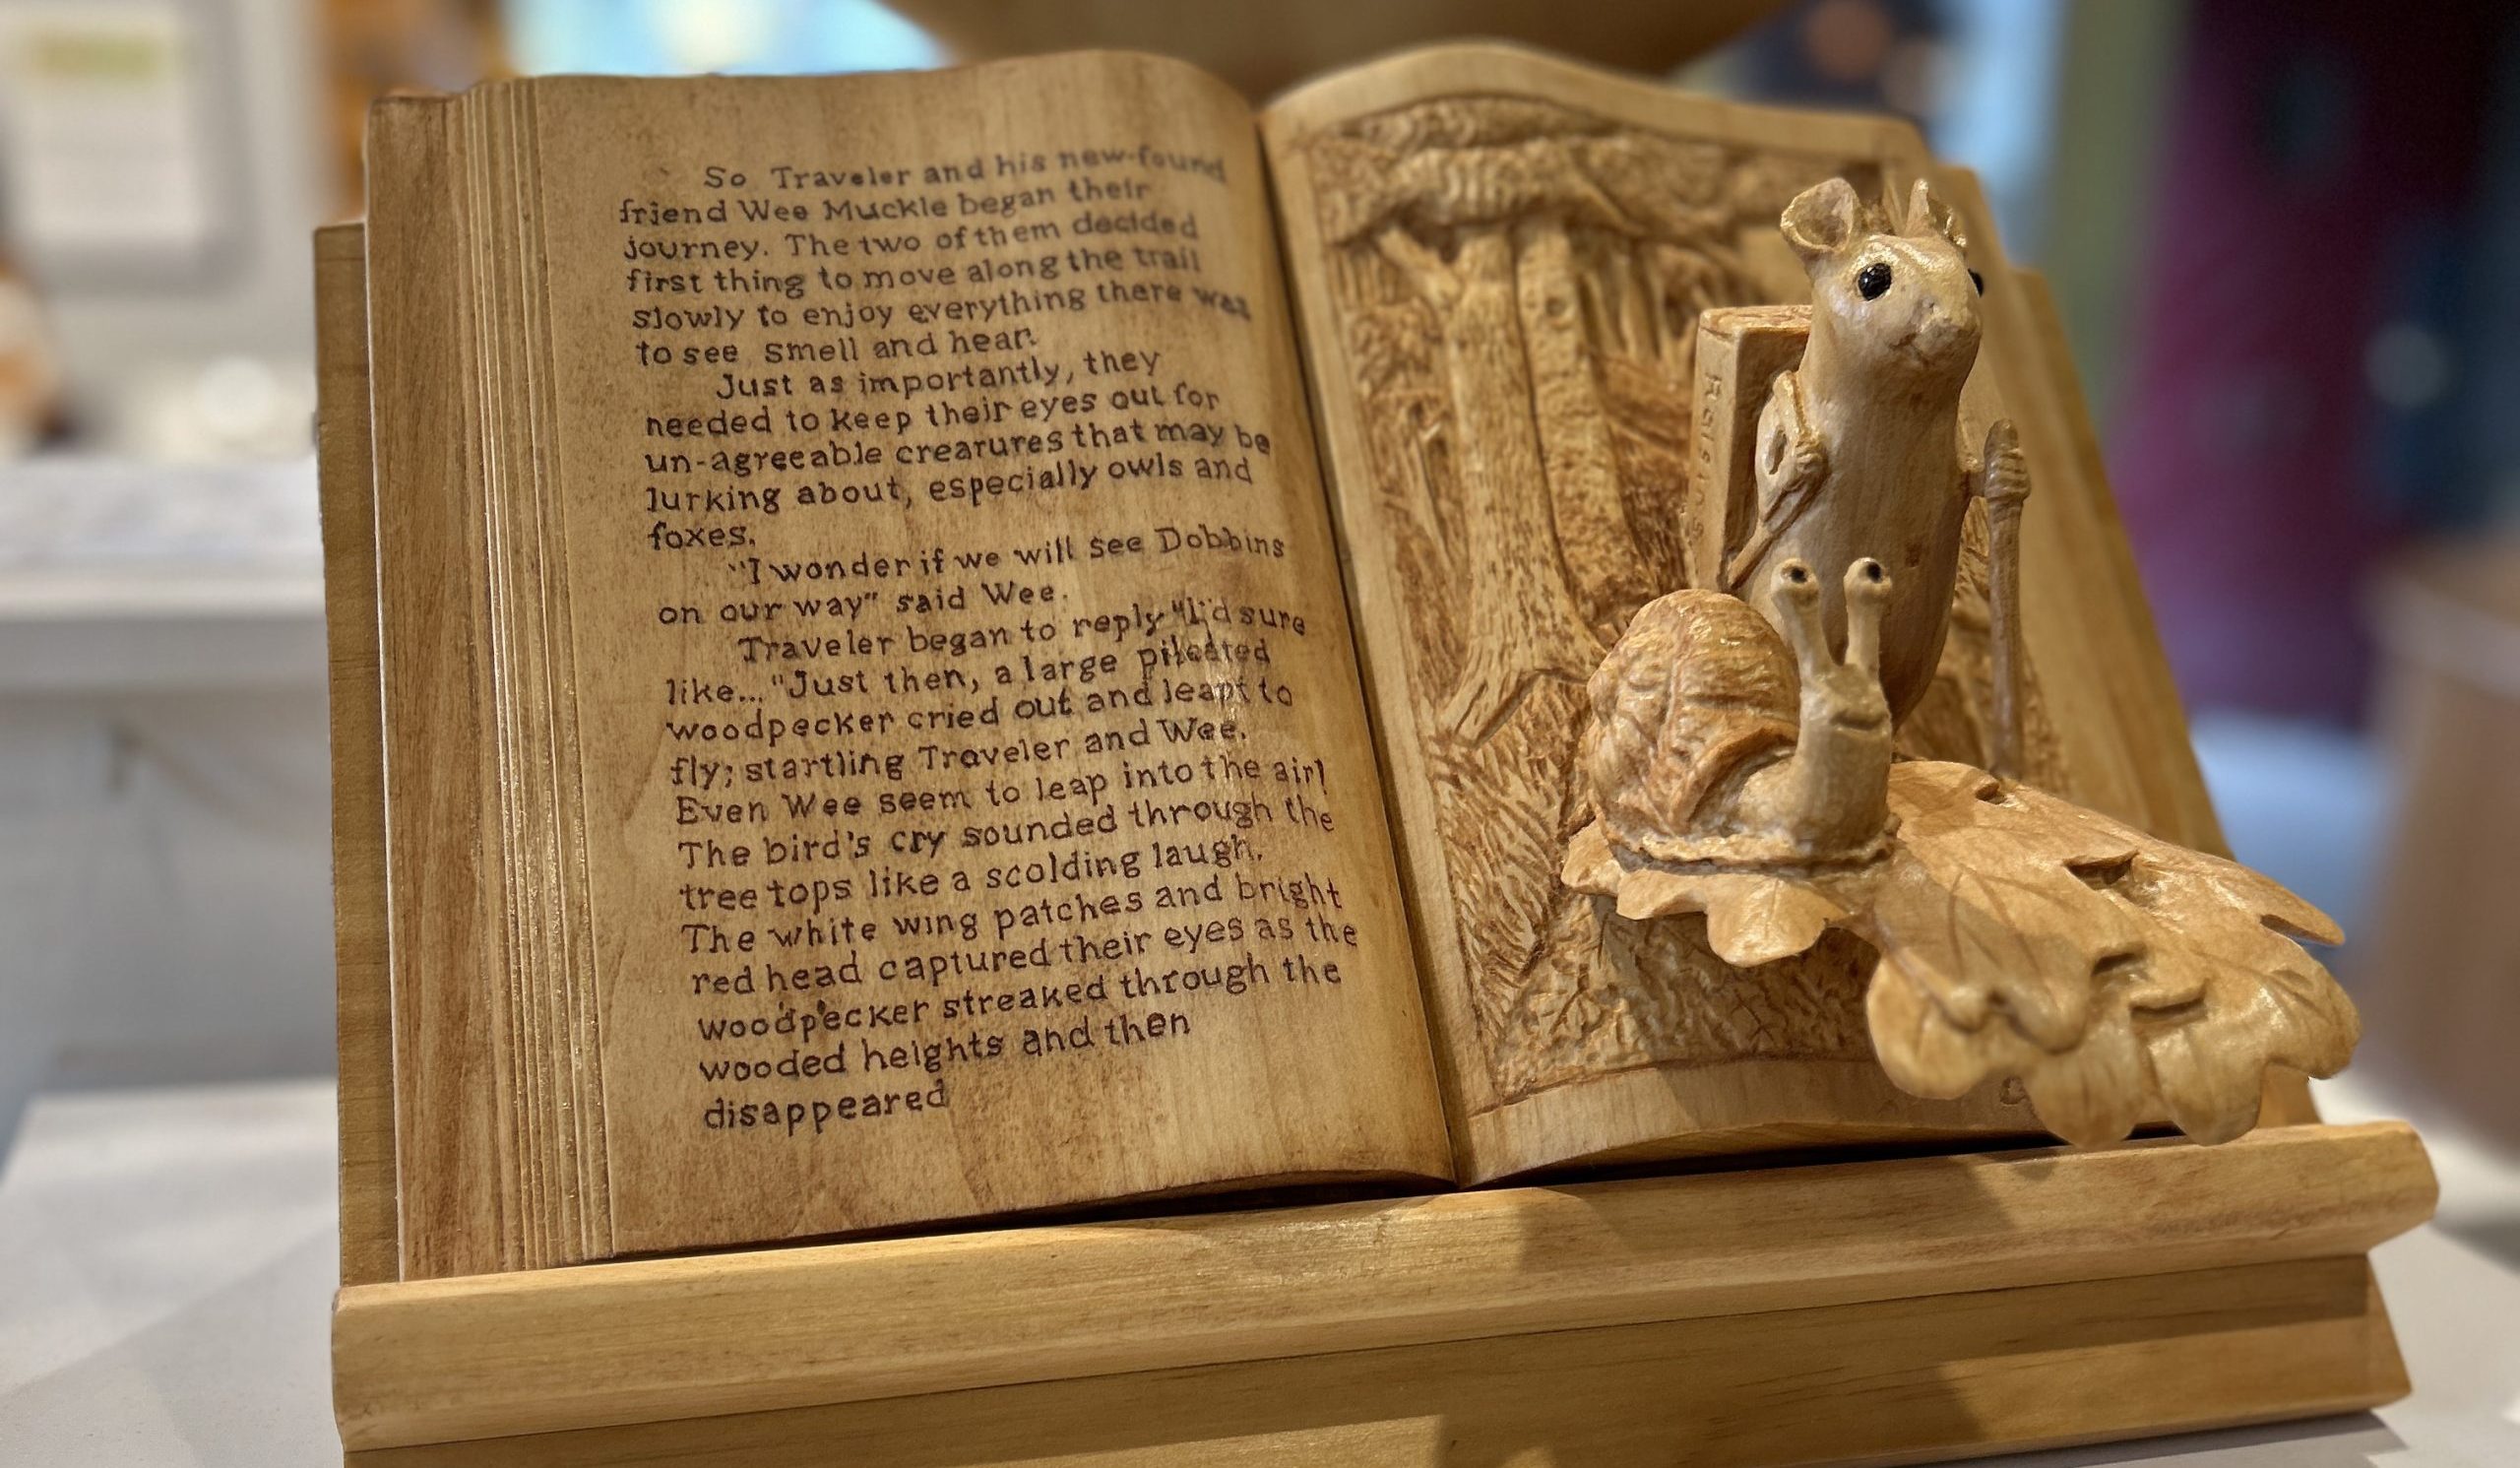 So Traveler and his new-found
friend Wee Muckle began their
journey. The two of them decided
first thing to move along the trail
slowly to enjoy everything there was
to see smell and hear.
Just as importantly, they
needed to keep their eyes out for
un-agreeable crearures that may be
lurking about, especially owls and
foxes.
"I wonder if we will see Dobbins
on our way" said Wee.
Traveler began to reply "I'd sure
like... "Just then, a large pileated
woodpecker cried out and leapt to
fly; startling Traveler and Wee.
Even Wee seem to leap into the air!
The bird's cry sounded through the
tree tops like a scolding laugh.
The white wing patches and bright
red head captured their eyes as the
woodpecker streaked through the
wooded heights and then
disappeared
Raisins